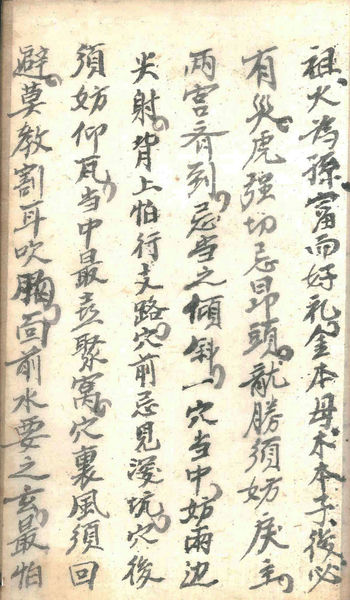 祖火為孫富而好礼金本母木本子後必
有災虎强切忌昂頭龍勝須妨戾主
兩宫齐到忌當之傾斜一穴当中妨兩边
尖射背上怕行叉路穴前忌見深坑穴後
須妨仰瓦当中最喜聚窩穴裏風須回
避莫教割耳吹胸面前水要之玄最怕